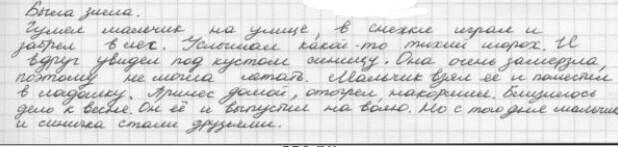 Была зима.
Гулял мальчик на улице, в снежки играл и
забрел в лес. Услышал какой-то тихий шорох. И
вдруг увидел под кустом синицу. Она очень замерзла,
поэтому не могла летать. Мальчик взял её и поместил
в ладошку. Принес домой, отогрел накормил. Близилось
дело к весне. Он её и выпустил на волю. Но с того дня мальчик
и синичка стали друзьями.